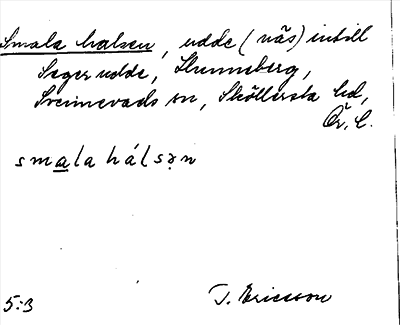 Smala halsen, udde (näs) intill
Segerudde, Skumeberg,
Svennevads sn, Sköllersta hd,
Ör. l.
smala hálsən
5:3 J. Ericsson